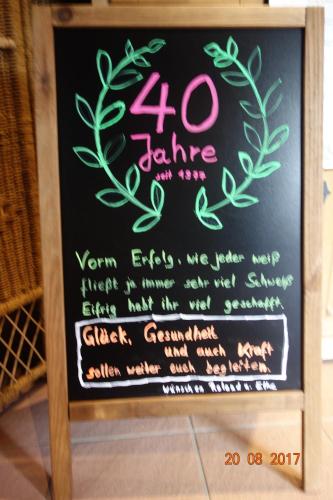 40
Jahre
seit 1977
Vorm Erfolg, wie jeder weiß
fließt ja immer sehr viel Schweiß
Eifrig habt ihr viel geschafft.
Glück, Gesundheit
und auch Kraft
sollen weiter euch begleiten.
wünschen Roland u. Elke
20 08 2017